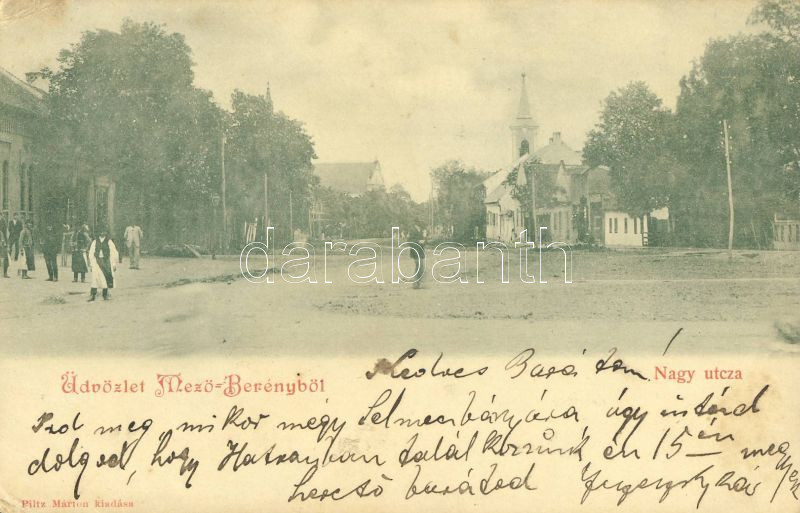 darabanth
Üdvözlet Mező-Berényből
Nagy utcza
Kedves Barátom!
Ird meg, mikor mégy Selmeczbányára, úgy intézd
dolgod, hogy Hatvanban találkozzunk én 15-én meg
barátod
Piltz Márton kiadása